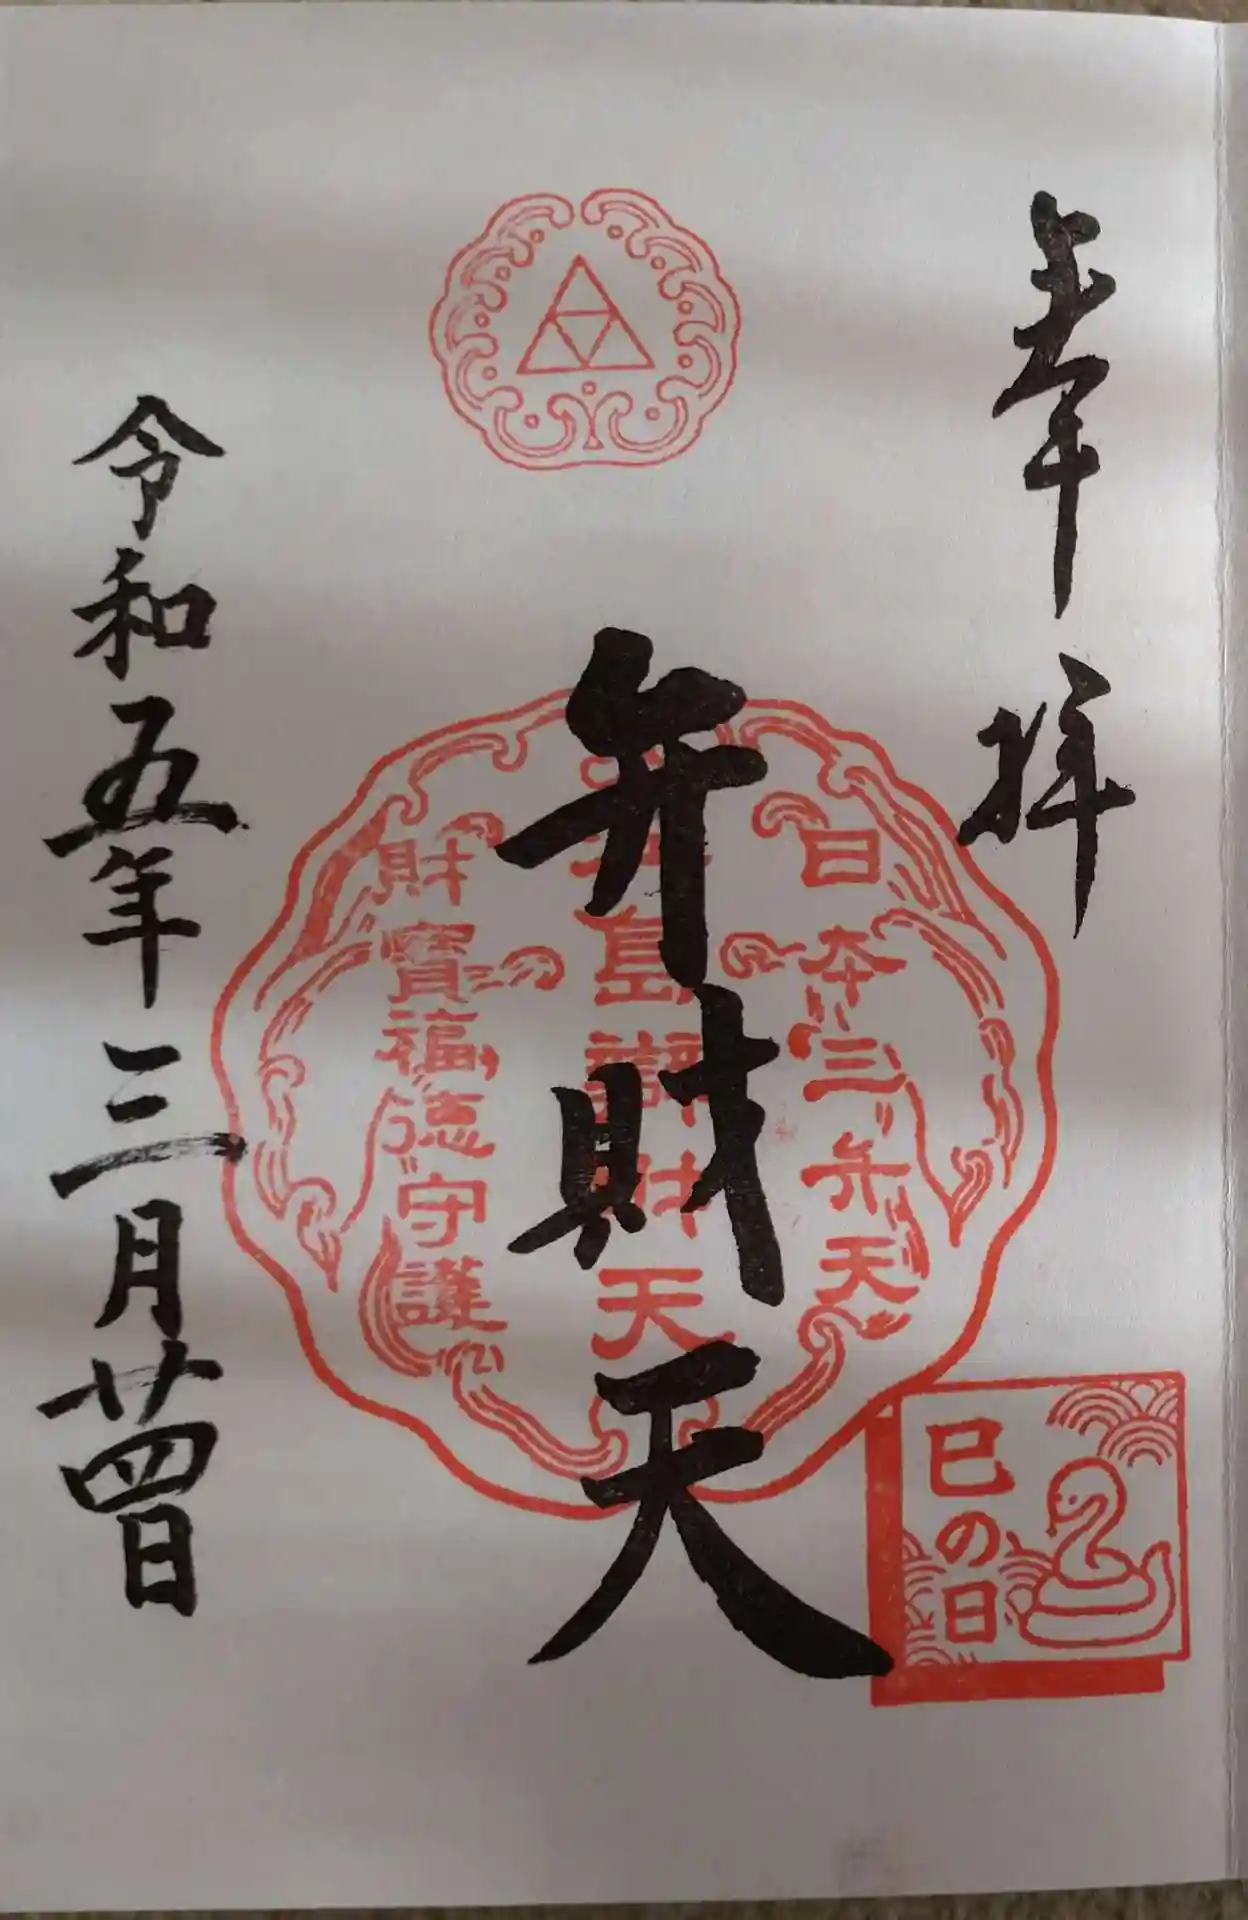 奉拝
日本三弁天
島辯財天
財寶福徳守護
弁財天
巳の日
令和五年三月廿四日